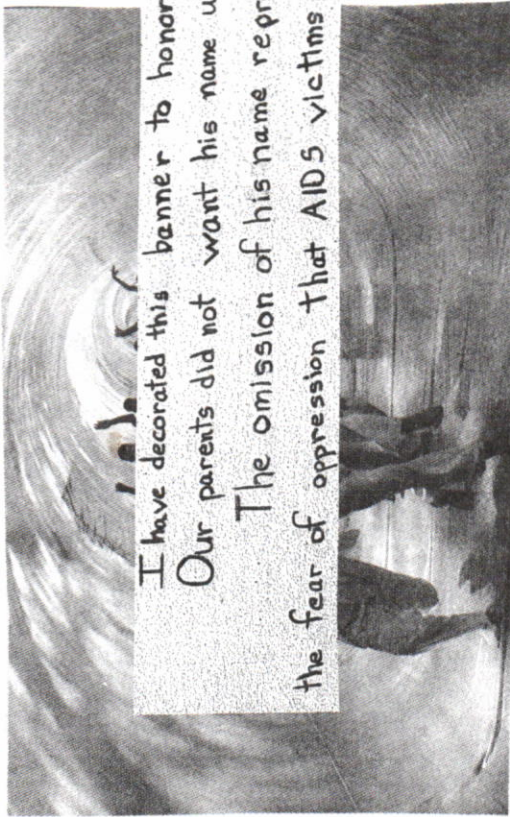 I have decorated this banner to honor
Our parents did not want his name
The omission of his name
the fear of oppression that AIDS victims